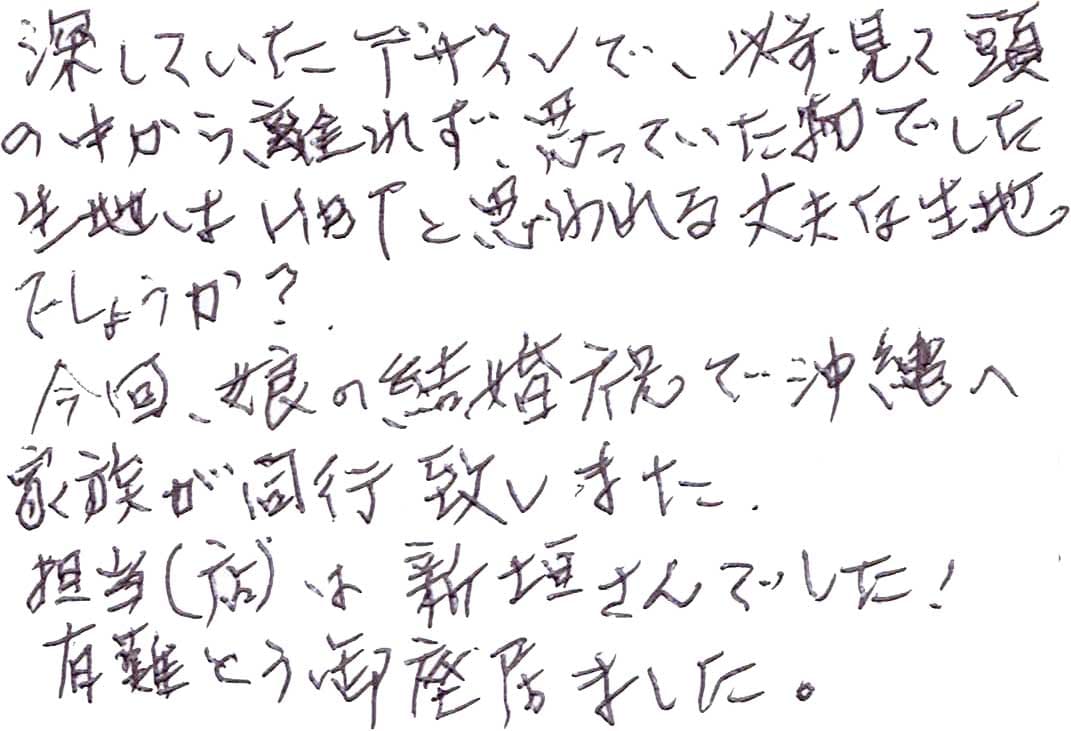 深していたデザインで、以前見て頭
の中から離れず、思っていた物でした
生地は以下と思われる丈夫な生地
でしょうか?
今回、娘の結婚祝で沖縄へ
家族が同行致しました.
担当(店)は新垣さんでした!
有難とう御座居ました。